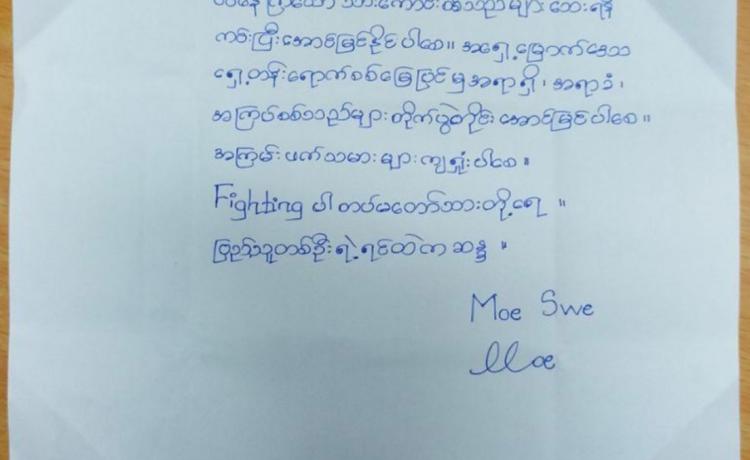 သားကောင်းရတနာများ ဘေးရန်
ကင်းပြီးအောင်မြင်နိုင်ပါစေ။ အရှေ့မြောက်ဒေသ
ရှေ့တန်းရောက်စစ်မြေပြင်မှအရာရှိ၊ အရာခံ၊
အကြပ်စစ်သည်များတိုက်ပွဲတိုင်းအောင်မြင်ပါစေ။
အကြမ်းဖက်သမားများကျရှုံးပါစေ။
Fighting ပါ တပ်မတော်သားတို့ရေ ။
ပြည်သူတစ်ဦးရဲ့ရင်ထဲကဆန္ဒ ။
Moe Swe
Moe